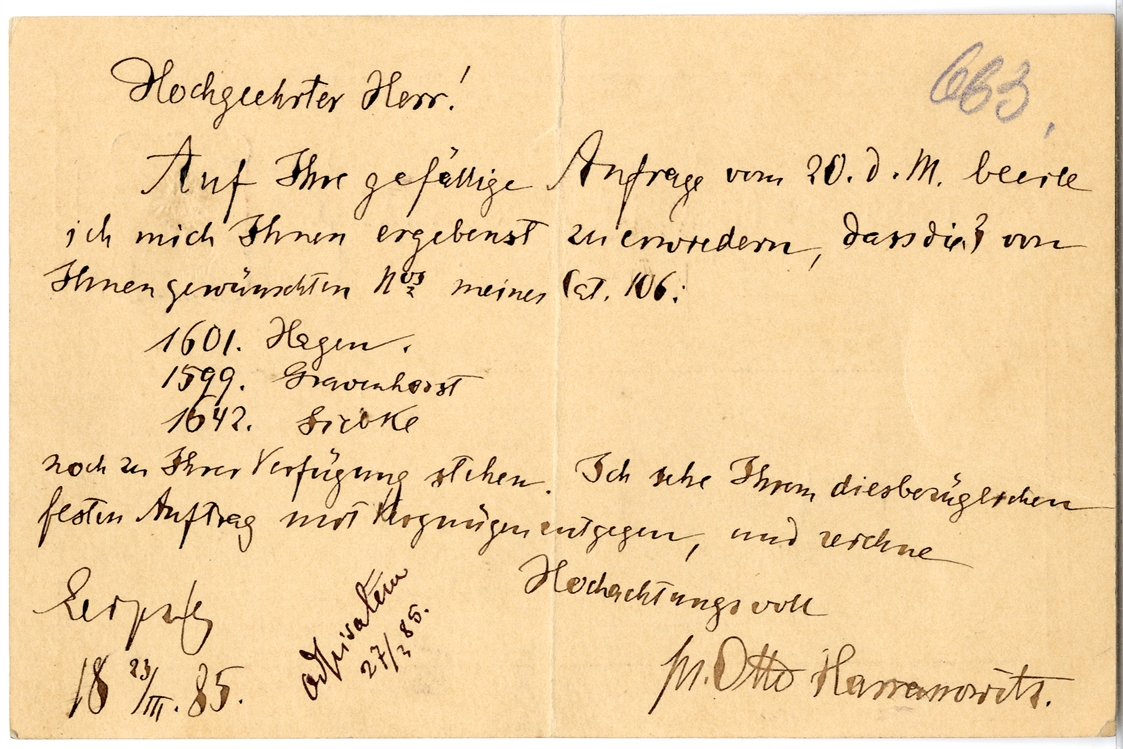 663.
Hochgeehrter Herr!
Auf Ihre gefällige Anfrage vom 20. d. M. beeile
ich mich Ihnen ergebenst zu erwiedern, dass die von
Ihnen gewünschten Nos meines Cat. 106:
1601. Hagen.
1599. Gravenhorst
1642. Siebke
noch zu Ihrer Verfügung stehen. Ich sehe Ihrem diesbezüglichen
festen Auftrag mit Vergnügen entgegen, und zeichne
Hochachtungsvoll
Leipzig
18 23/III. 85.
odpisałem
27/3 85.
pr. Otto Harrassowitz.